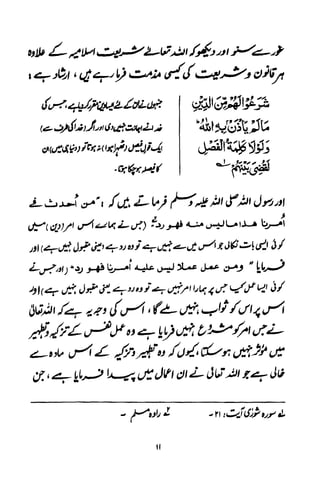 غور سے سنو اور دیکھو کہ اللہ تعالےٰ شریعت اسلامیہ کے علاوہ
ہر قانون وشریعت کی کیسی مذمت فرما رہے ہیں ، ارشاد ہے :
شَرَعُوْا لَهُمْ مِّنَ الدِّيْنِ
مَالَمْ يَاْذَنْ بِهِ اللّٰهُ
وَلَوْلَا كَلِمَةُ الْفَصْلِ
لَقُضِىَ بَيْنَهُمْ
جنہوں نے ان کے لئے ایسا دین مقرر کردیا ہے، جس کی
خدا نے اجازت نہیں دی اور اگر (خدا کی طرف سے)
ایک قول فیصل (ٹھہرا ہوا) نہ ہوتا تو (دنیا ہی میں) ان
کا فیصلہ ہوچکا ہوتا۔
اور رسول اللہ صلی اللہ علیہ وسلم فرماتے ہیں کہ : "من أحدث في
أمرنا هذا ماليس منه فهو رد" (جس نے ہمارے اس امر (دین) میں
کوئی ایسی بات نکالی جو اس میں سے نہیں ہے تو وہ رد ہے (یعنی مقبول نہیں ہے) اور
فرمایا " ومن عمل عملا ليس عليه أمرنا فهو رد " (اور جس نے
کوئی ایسا عمل کیا جس پر ہمارا امر نہیں ہے تو وہ رد ہے یعنی مقبول نہیں ہے) اور
اس پر اس کو ثواب نہیں ملے گا، اس کی وجہ یہ ہے کہ اللہ تعالیٰ
نے جس امر کو مشروع نہیں فرمایا ہے وہ عمل نفس کے تزکیہ وتطہیر
میں مؤثر نہیں ہوسکتا، کیوں کہ وہ تطہیر وتزکیہ کے اس مادہ سے
خالی ہے جو اللہ تعالیٰ نے ان اعمال میں پیدا فرمایا ہے ، جن
لے سورہ شوریٰ آیت : ۲۱ - ٢ رواه مسلم -
۱۱